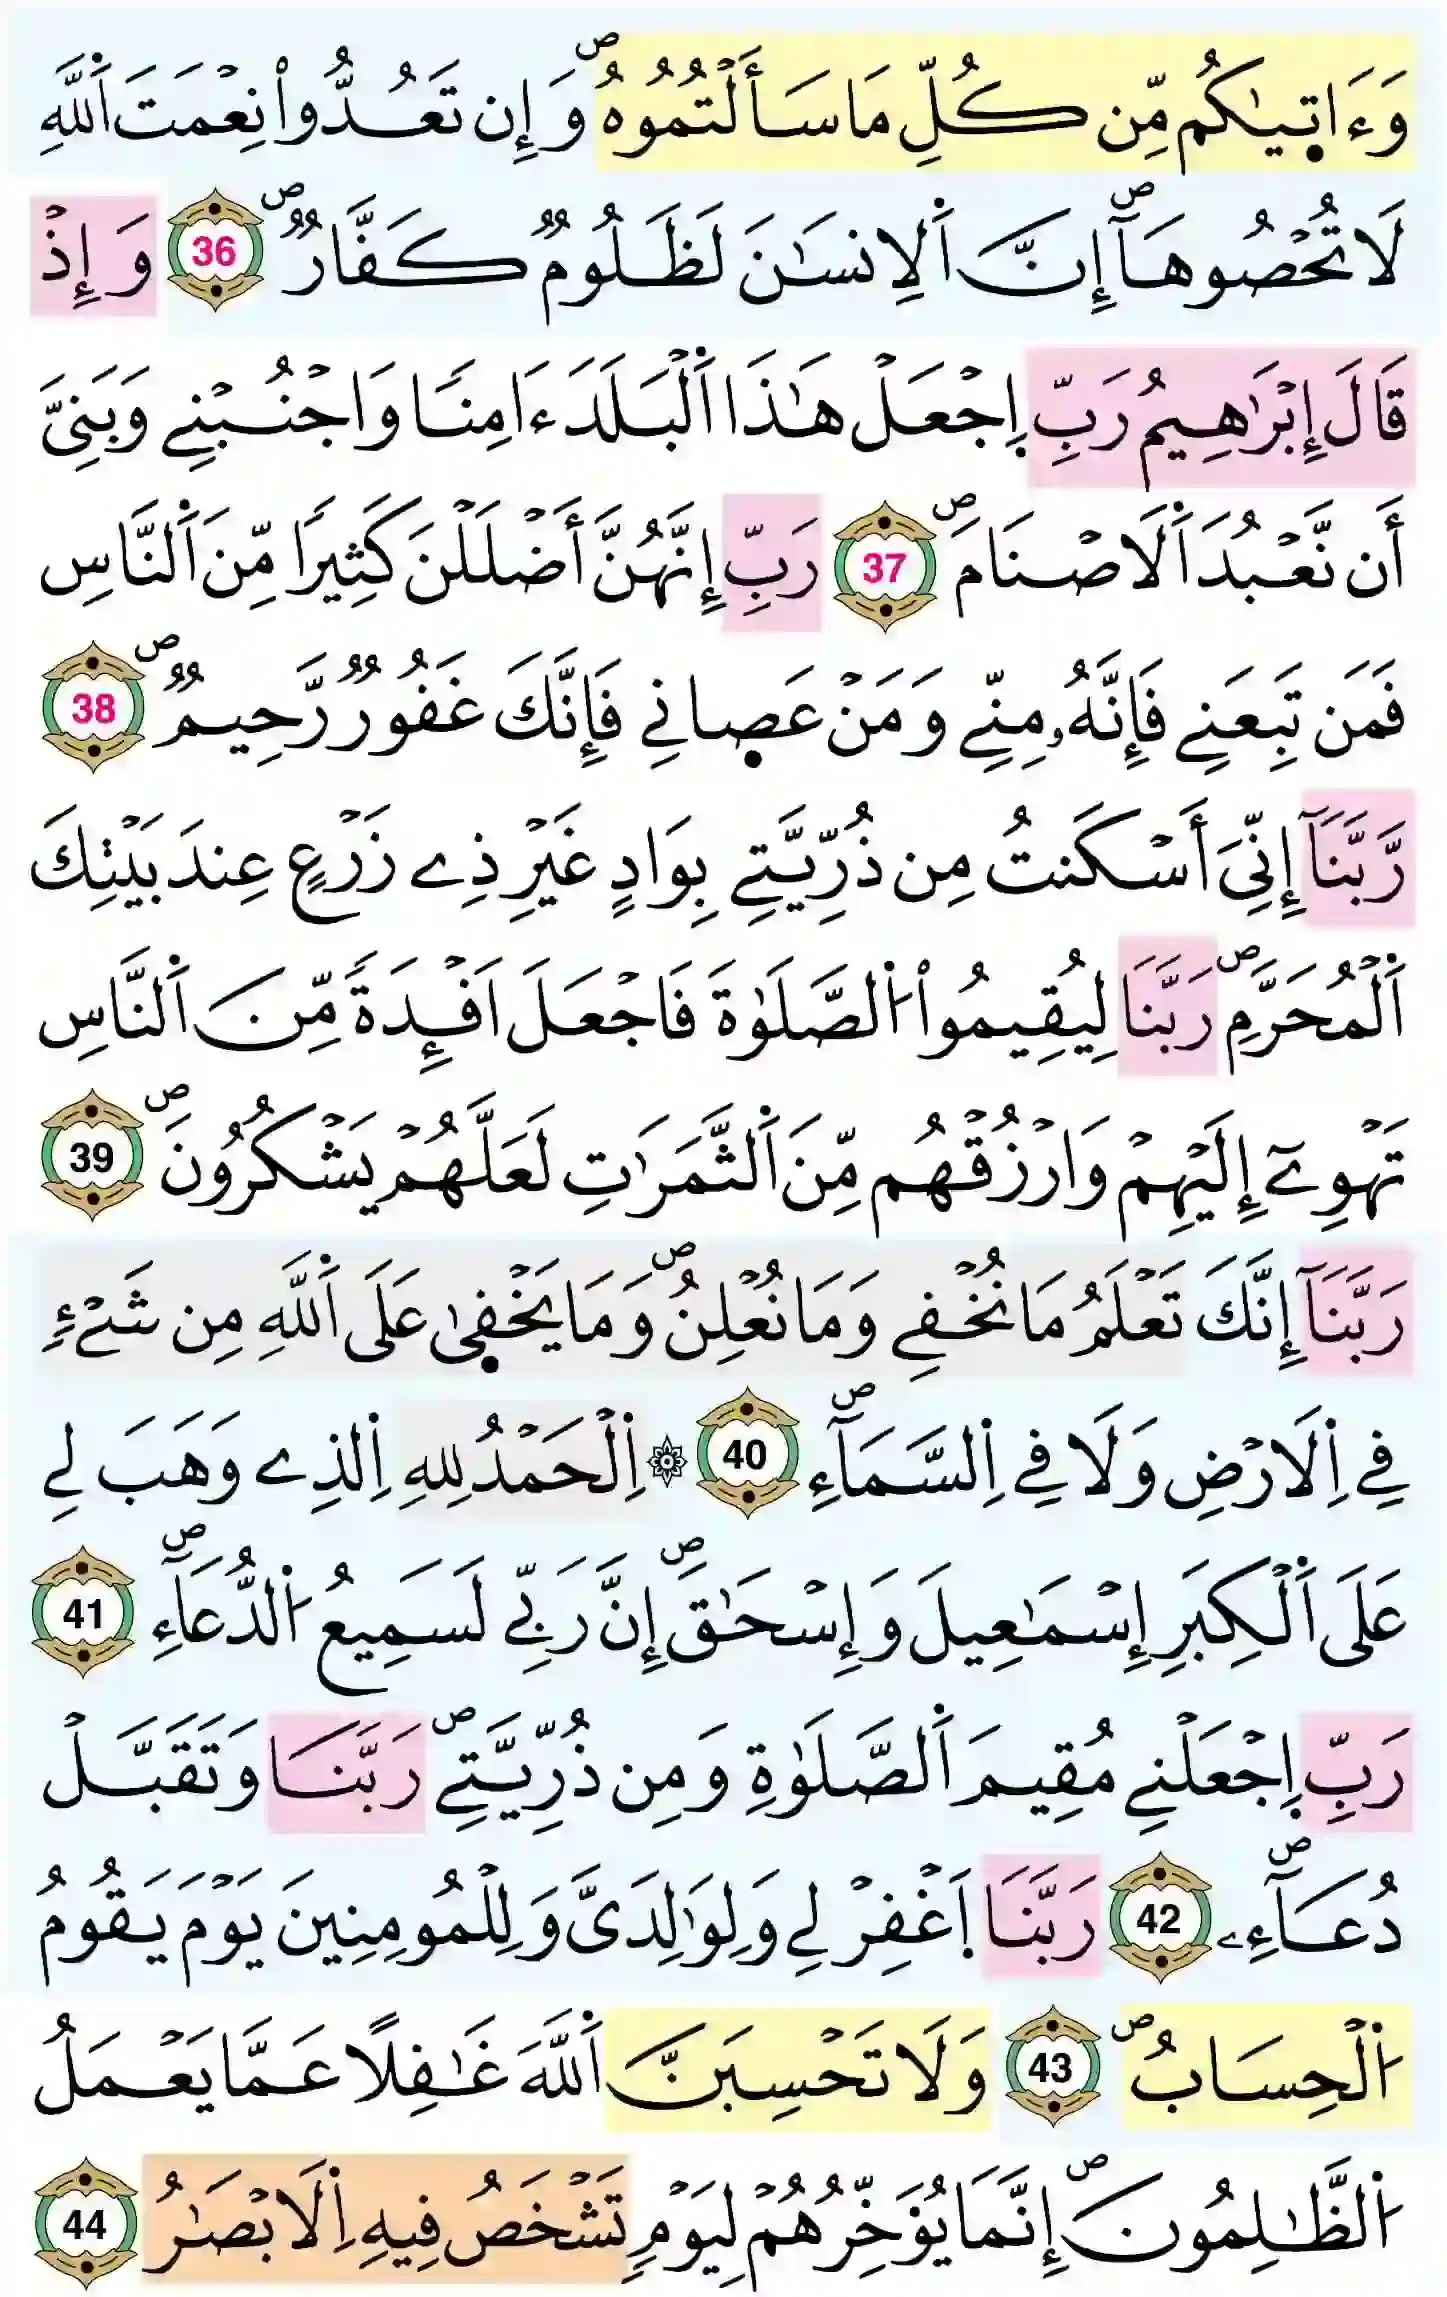 وَءَاتٜيٰكُم مِّن كُلِّ مَا سَأَلْتُمُوهُۖ وَإِن تَعُدُّواْ نِعْمَتَ اَ۬للَّهِ
لَا تُحْصُوهَآۖ إِنَّ اَ۬لِانسَٰنَ لَظَلُومٌ كَفَّارٌۖ 36 وَإِذْ
قَالَ إِبْرَٰهِيمُ رَبِّ اِ۪جْعَلْ هَٰذَا اَ۬لْبَلَدَ ءَامِنًا وَاجْنُبْنِے وَبَنِيَّ
أَن نَّعْبُدَ اَ۬لَاصْنَامَۖ 37 رَبِّ إِنَّهُنَّ أَضْلَلْنَ كَثِيرًا مِّنَ اَ۬لنَّاسِ
فَمَن تَبِعَنِے فَإِنَّهُۥ مِنِّے وَمَنْ عَصٜانِے فَإِنَّكَ غَفُورٌ رَّحِيمٌۖ 38
رَّبَّنَآ إِنِّيَ أَسْكَنتُ مِن ذُرِّيَّتِے بِوَادٍ غَيْرِ ذِے زَرْعٍ عِندَ بَيْتِكَ
اَ۬لْمُحَرَّمِۖ رَبَّنَا لِيُقِيمُواْ اُ۬لصَّلَوٰةَ فَاجْعَلَ اَفْـِٕدَةً مِّنَ اَ۬لنَّاسِ
تَهْوِےٓ إِلَيْهِمْ وَارْزُقْهُم مِّنَ اَ۬لثَّمَرَٰتِ لَعَلَّهُمْ يَشْكُرُونَۖ 39
رَبَّنَآ إِنَّكَ تَعْلَمُ مَا نُخْفِے وَمَا نُعْلِنُۖ وَمَا يَخْفٜيٰ عَلَى اَ۬للَّهِ مِن شَےْءٍ
فِي اِ۬لَارْضِ وَلَا فِي اِ۬لسَّمَآءِۖ 40 ۞ اِ۬لْحَمْدُ لِلهِ اِ۬لذِے وَهَبَ لِے
عَلَى اَ۬لْكِبَرِ إِسْمَٰعِيلَ وَإِسْحَٰقَۖ إِنَّ رَبِّے لَسَمِيعُ اُ۬لدُّعَآءِۖ 41
رَبِّ اِ۪جْعَلْنِے مُقِيمَ اَ۬لصَّلَوٰةِ وَمِن ذُرِّيَّتِےۖ رَبَّنَا وَتَقَبَّلْ
دُعَآءِۦۖ 42 رَبَّنَا اَ۪غْفِرْ لِے وَلِوَٰلِدَيَّ وَلِلْمُومِنِينَ يَوْمَ يَقُومُ
اُ۬لْحِسَابُۖ 43 وَلَا تَحْسِبَنَّ اَ۬للَّهَ غَٰفِلًا عَمَّا يَعْمَلُ
اُ۬لظَّٰلِمُونَۖ إِنَّمَا يُوَ۬خِّرُهُمْ لِيَوْمٍ تَشْخَصُ فِيهِ اِ۬لَابْصَٰرُ 44